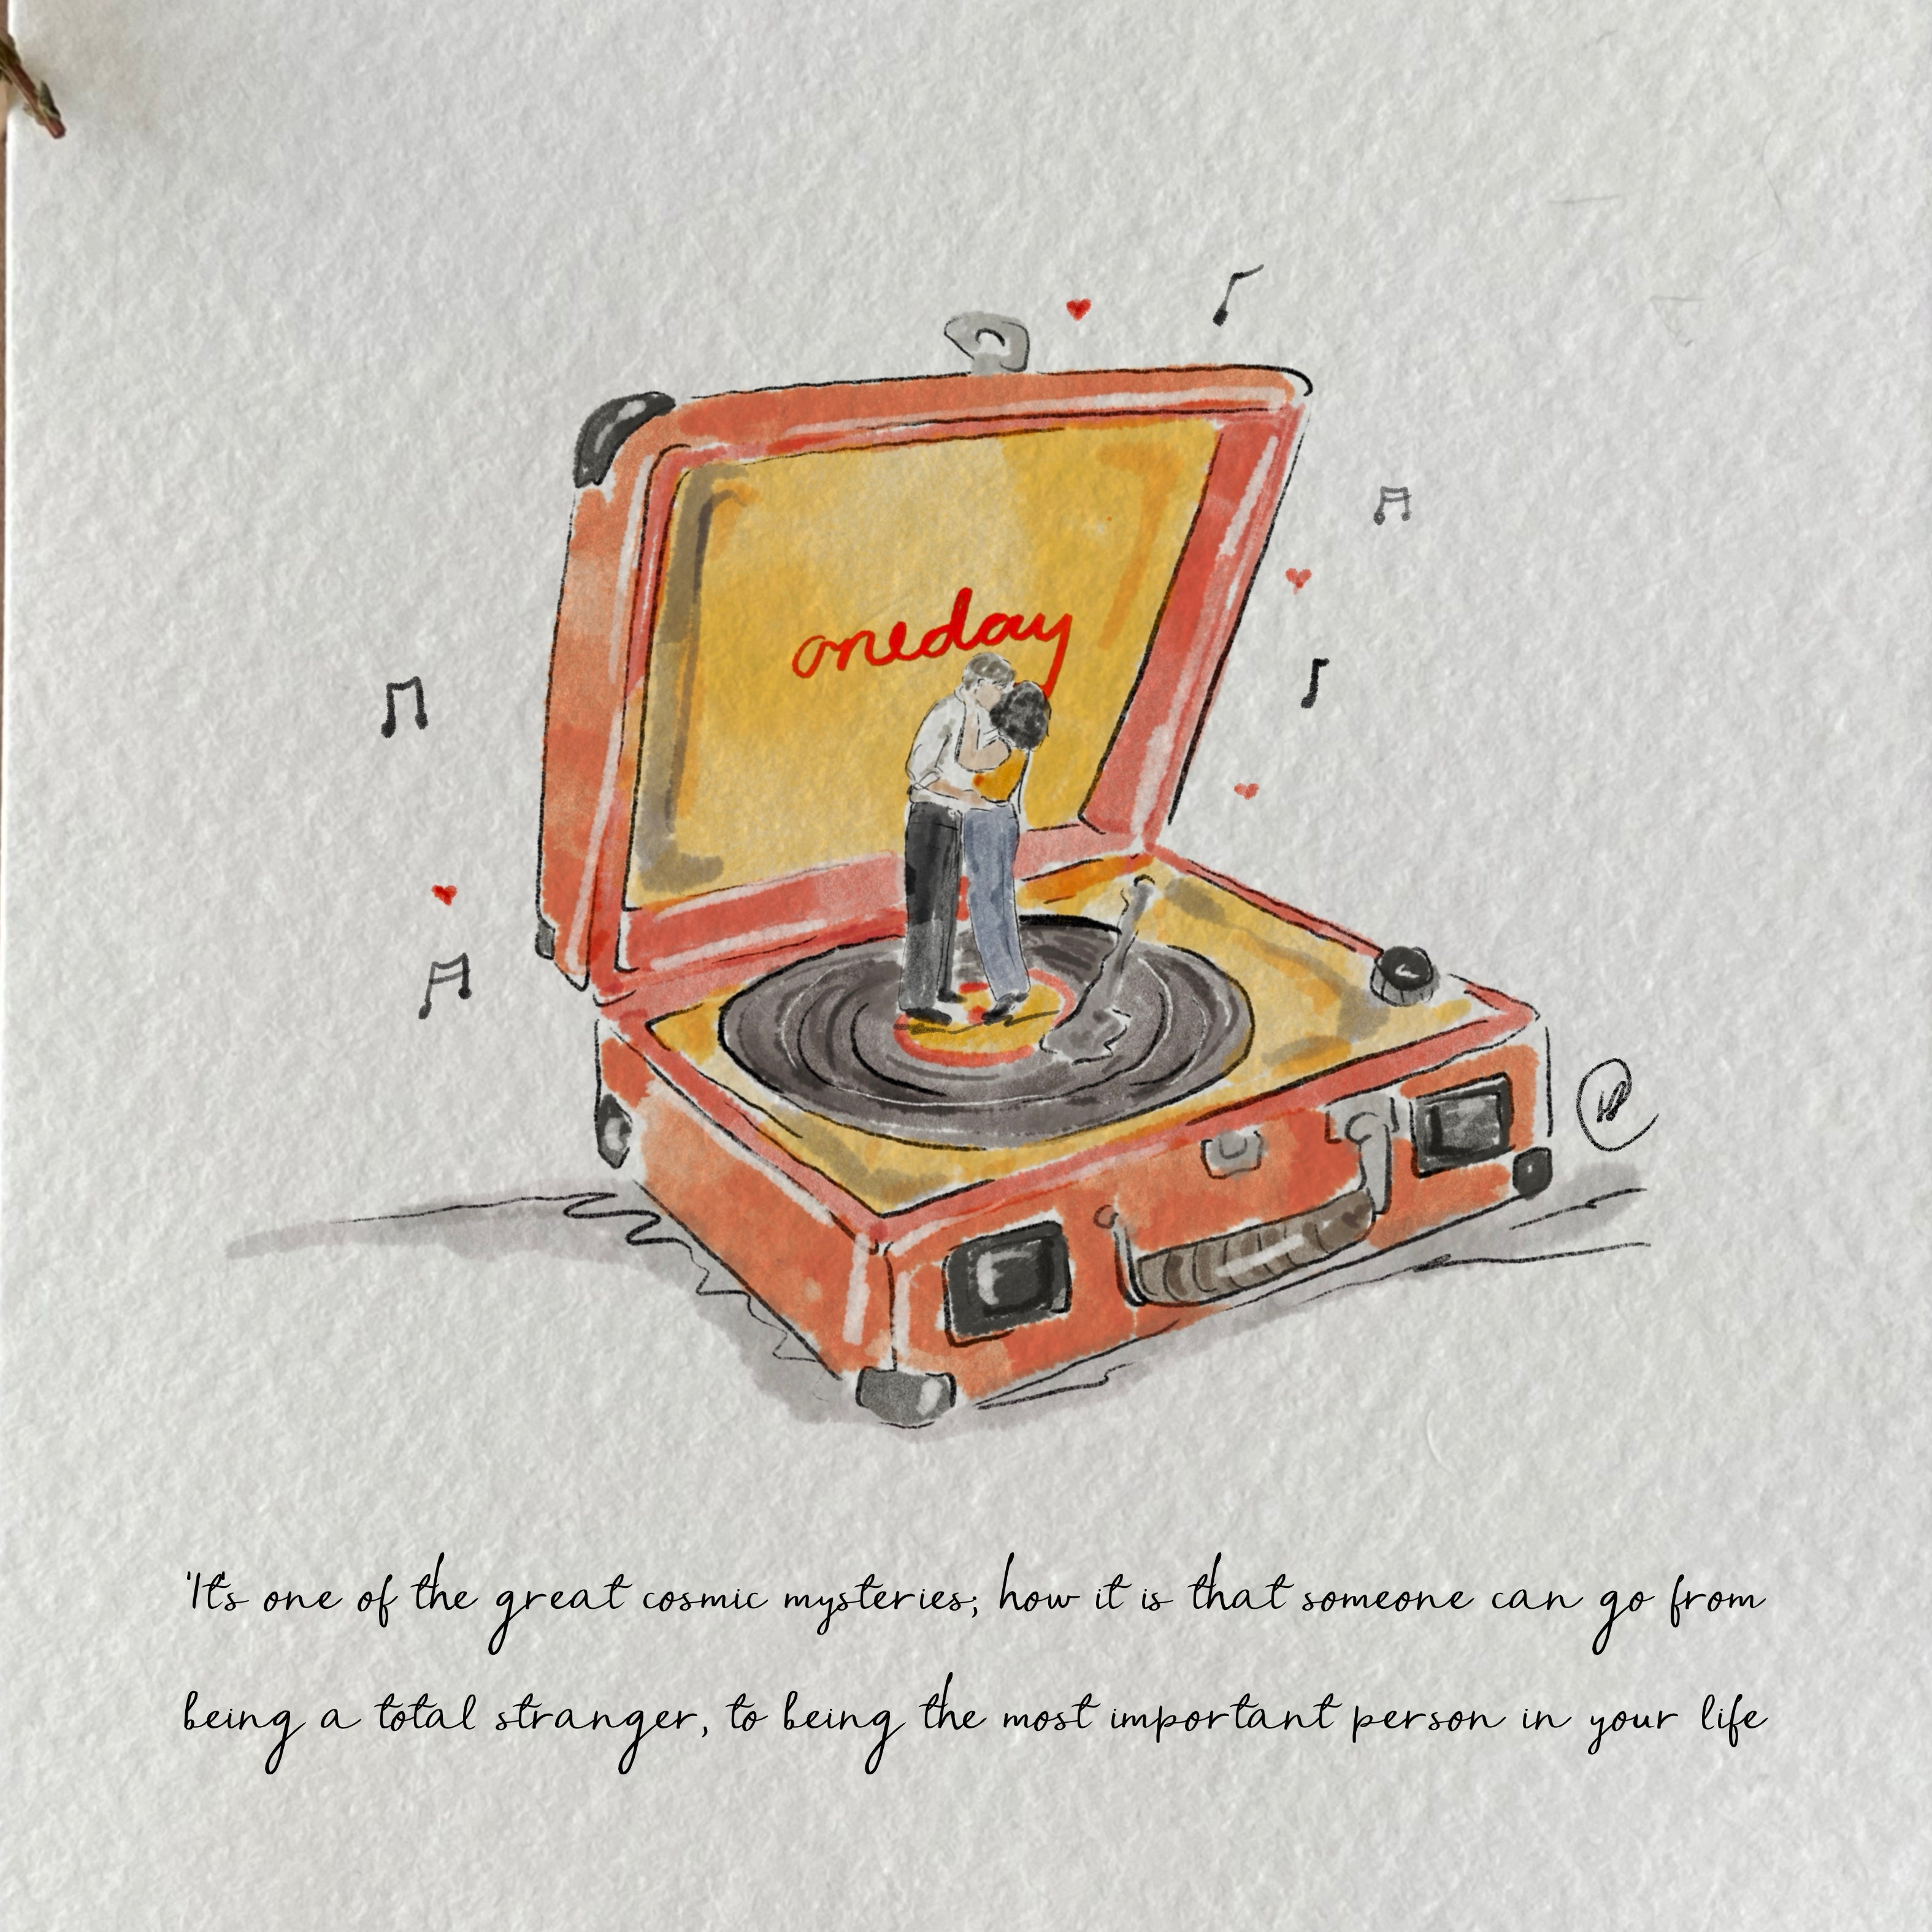 oneday
'It's one of the great cosmic mysteries; how it is that someone can go from
being a total stranger, to being the most important person in your life